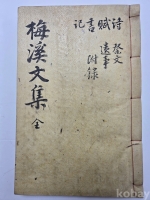 梅溪文集 全
詩 祭文
賦 遺事
書 附錄
記
kobay